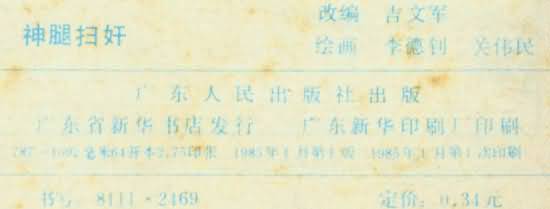 神腿扫奸
改编 吉文军
绘画 李德钊 关伟民
广东人民出版社出版
广东省新华书店发行 广东新华印刷厂印刷
787×1092毫米64开本2.75印张 1985年1月第1版 1985年1月第1次印刷
书号 8111·2469 定价：0.34元